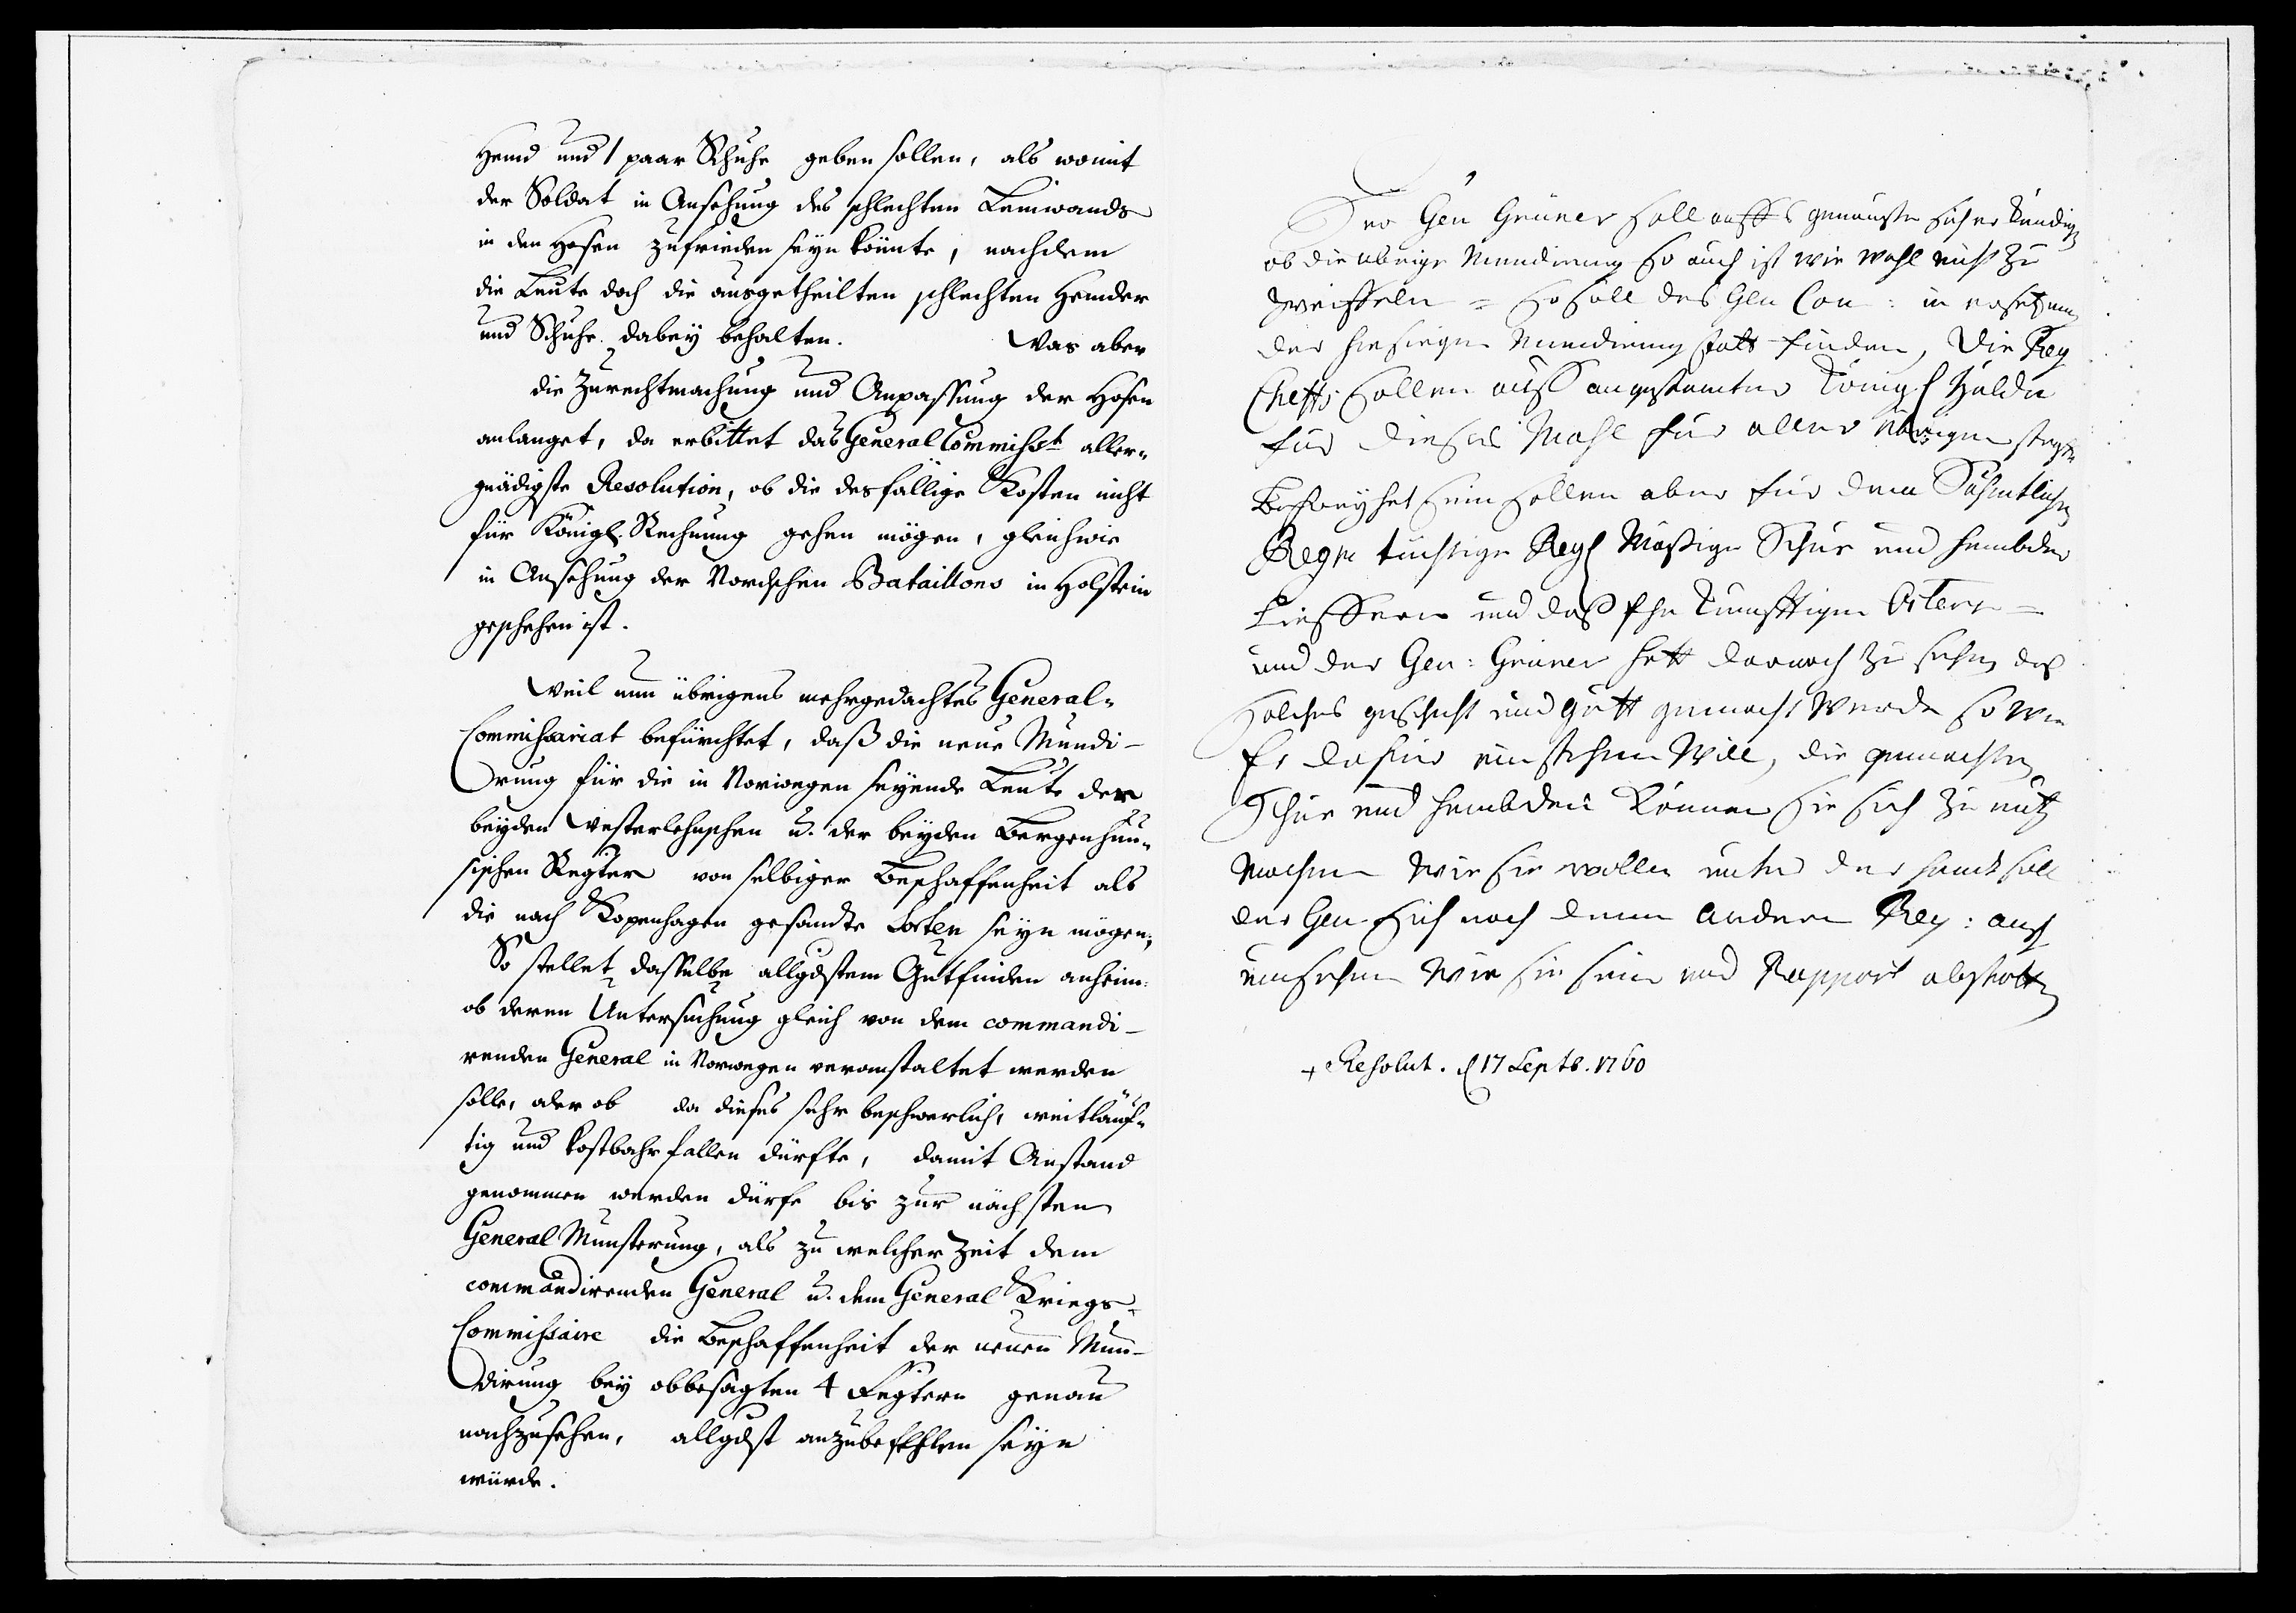 Hemd und 1 paar Schuhe geben sollen, als womit
der Soldat in Ansehung des schlechten Leinwands
in den Hosen zufrieden seyn könnte, nachdem
die Leute doch die ausgetheilten schlechten Hemder
und Schuhe dabey behalten. Was aber
die Zurechtmachung und Anpassung der Hosen
anlanget, da erbittet das General Commisst aller-
gnädigste Resolution, ob die desfällige Kosten nicht
für Königl. Rechnung gehen mögen, gleichwie
in Ansehung der Nordschen Bataillons in Holstein
geschehen ist.
Weil nun übrigens mehrgedachtes General-
Commissariat befürchtet, daß die neue Mundi-
rung für die in Norwegen seyende Leute der
beyden Westerlehnschen u. der beyden Bergenhuu-
sischen Regter von selbiger Beschaffenheit als
die nach Kopenhagen gesandte Sorten seyn mögen,
So stellet dasselbe allgdstem Gutfinden anheim:
ob deren Untersuchung gleich von dem commandi-
renden General in Norwegen veranstaltet werden
solle, oder ob da dieses sehr beschwerlich, weitläuf-
tig und kostbahr fallen dürfte, damit Anstand
genommen werden dürfe bis zur nächsten
General Munsterung, als zu welcher Zeit dem
commandirenden General u. dem General Kriegs-
Commissaire die Beschaffenheit der neuen Mun-
dirung bey obbesagten 4 Regtern genau
nachzusehen, allgdst anzubefehlen seyn
würde.
Der Gen Grüner soll auffs genauste sich er kundigen
ob die übrige Mundirung so auch ist wie wohl nicht zu
zweiffeln = so soll des Gen Com: in
der hiesigen Mundirung statt finden, Die Reg
Cheffs sollen auss angestamter Königl Hulde
für dieses Mahl für aller übrigen
befreyhet sein sollen aber für dem Sähmtlichen
Regm tüchtige Regl Mässige Schue und hembder
Lieffern und dass Ehe kunfftigen Ostern =
und der Gen: Grüner hatt darnach zu sehen dass
Solches geschicht und gutt gemacht werde so wie
Er dafür einstehen Will, die gemachten
Schue und hembder können sie sich zu nutz
machen wie sie wollen unter der handt soll
der Gen sich nach denen andern Reg: auch
umsehen wie sie sein und Rapport abstatten
+ Resolut. d 17 Septb. 1760